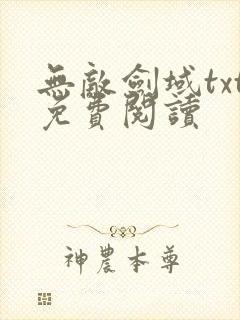 無敵劍域txt
免費閱讀
神農本尊